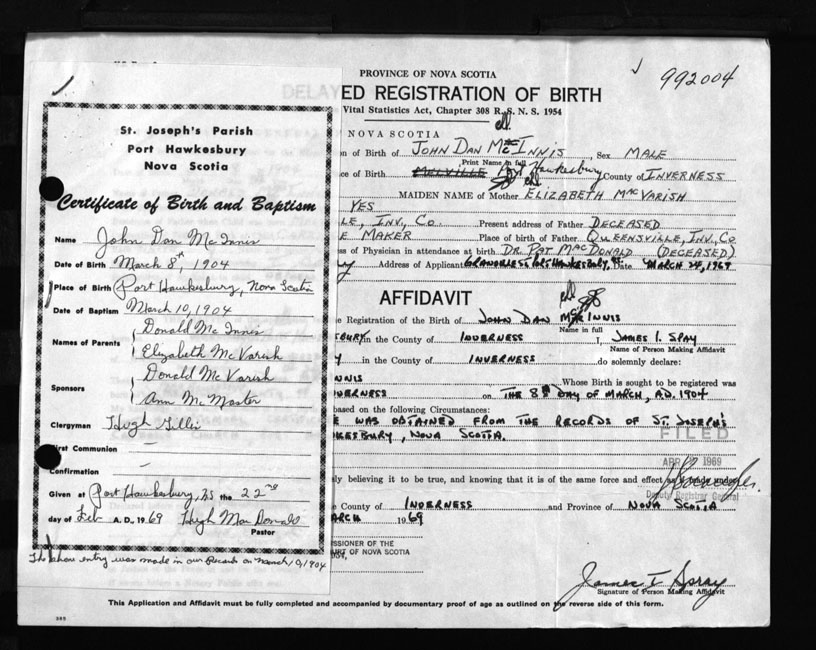 St. Joseph's Parish
Port Hawkesbury
Nova Scotia
Certificate of Birth and Baptism
Name John Dan McInnis
Date of Birth March 8th, 1904
Place of Birth Port Hawkesbury, Nova Scotia
Date of Baptism March 10, 1904
Names of Parents Donald McInnis
Elizabeth McVarish
Sponsors Donald McVarish
Ann McMaster
Clergyman Hugh Gillis
First Communion —
Confirmation —
Given at Port Hawkesbury, NS the 22nd
day of Feb A. D. 1969 Hugh MacDonald
Pastor
The above entry was made in our Records on March 10, 1904
992004
PROVINCE OF NOVA SCOTIA
DELAYED REGISTRATION OF BIRTH
Vital Statistics Act, Chapter 308 R. S. N. S. 1954
NOVA SCOTIA
on of Birth of JOHN DAN McINNIS Sex MALE
Print Name in full
ce of Birth MELVILLE Port Hawkesbury County of INVERNESS
MAIDEN NAME of Mother ELIZABETH MacVARISH
YES
LE, INV., CO. Present address of Father DECEASED
E MAKER Place of birth of Father QUEENSVILLE, INV., CO.
ss of Physician in attendance at birth DR. PAT MACDONALD (DECEASED)
Address of Applicant Date MARCH 24, 1969
AFFIDAVIT
e Registration of the Birth of JOHN DAN McINNIS
Name in full
SBURY in the County of INVERNESS I, JAMES I. SPAY
Name of Person Making Affidavit
Y in the County of INVERNESS do solemnly declare:
NNIS Whose Birth is sought to be registered was
VERNESS on THE 8th DAY OF MARCH, A.D. 1904
based on the following Circumstances:
E WAS OBTAINED FROM THE RECORDS OF ST. JOSEPH'S
KESBURY, NOVA SCOTIA.
FILED
APR 1969
ly believing it to be true, and knowing that it is of the same force and effect as if made under
Deputy Registrar General
e County of INVERNESS and Province of NOVA SCOTIA
ARCH 1969
SSIONER OF THE
URT OF NOVA SCOTIA
James I Spray
Signature of Person Making Affidavit
This Application and Affidavit must be fully completed and accompanied by documentary proof of age as outlined on the reverse side of this form.